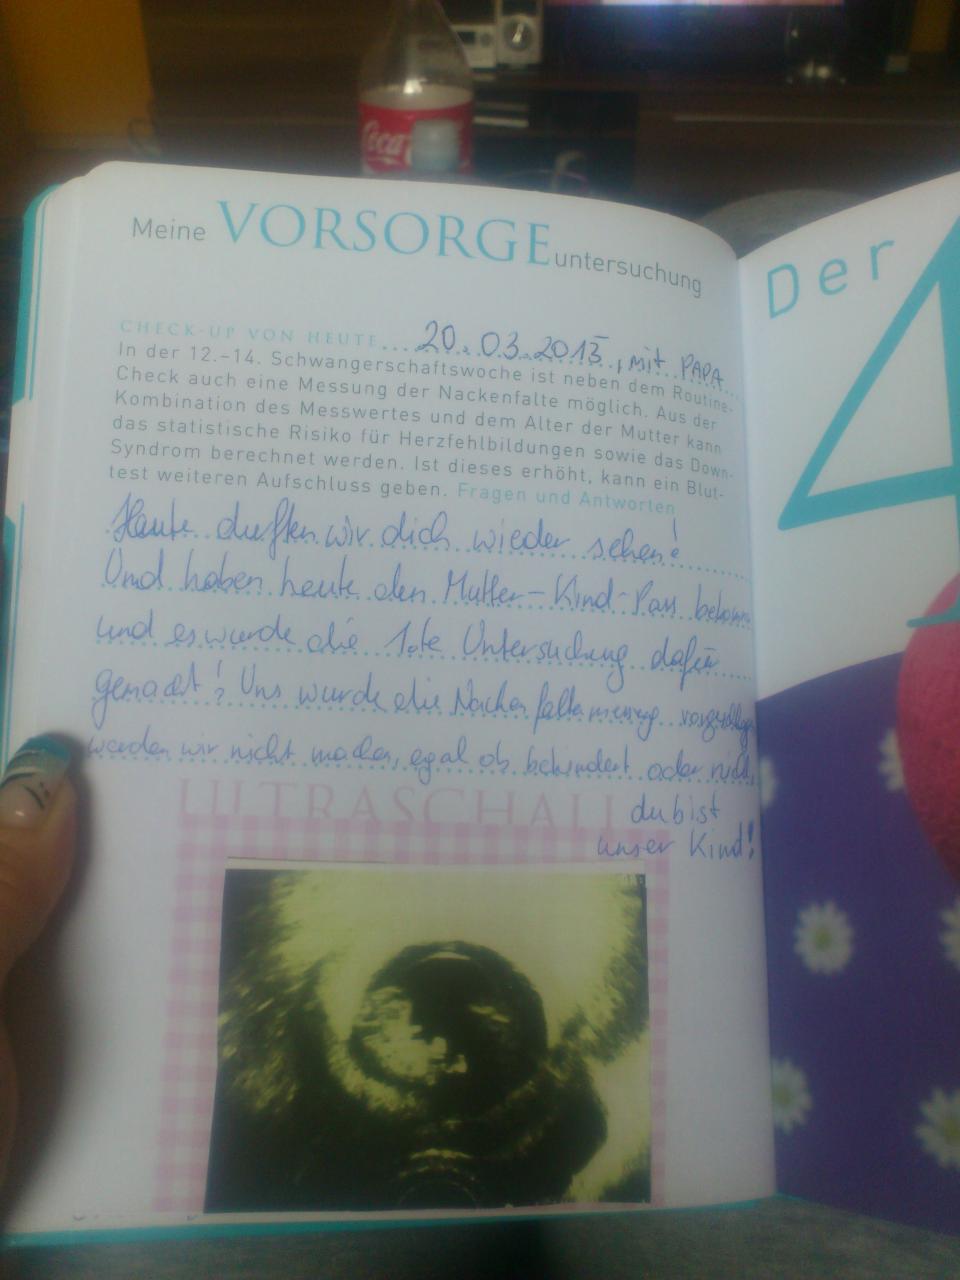 Coca
Meine VORSORGEuntersuchung
CHECK-UP VON HEUTE.... 20.03.2013, mit PAPA
In der 12.–14. Schwangerschaftswoche ist neben dem Routine-
Check auch eine Messung der Nackenfalte möglich. Aus der
Kombination des Messwertes und dem Alter der Mutter kann
das statistische Risiko für Herzfehlbildungen sowie das Down-
Syndrom berechnet werden. Ist dieses erhöht, kann ein Blut-
test weiteren Aufschluss geben. Fragen und Antworten
Heute duften wir dich wieder sehen!
Und haben heute den Mutter-Kind-Pass
und es wurde die 1.te Untersuchung dafür
gemacht! Uns wurde die Nackenfaltenmessung
werden wir nicht machen, egal ob behindert oder nicht,
du bist
unser Kind!
ULTRASCHALL
Der
4